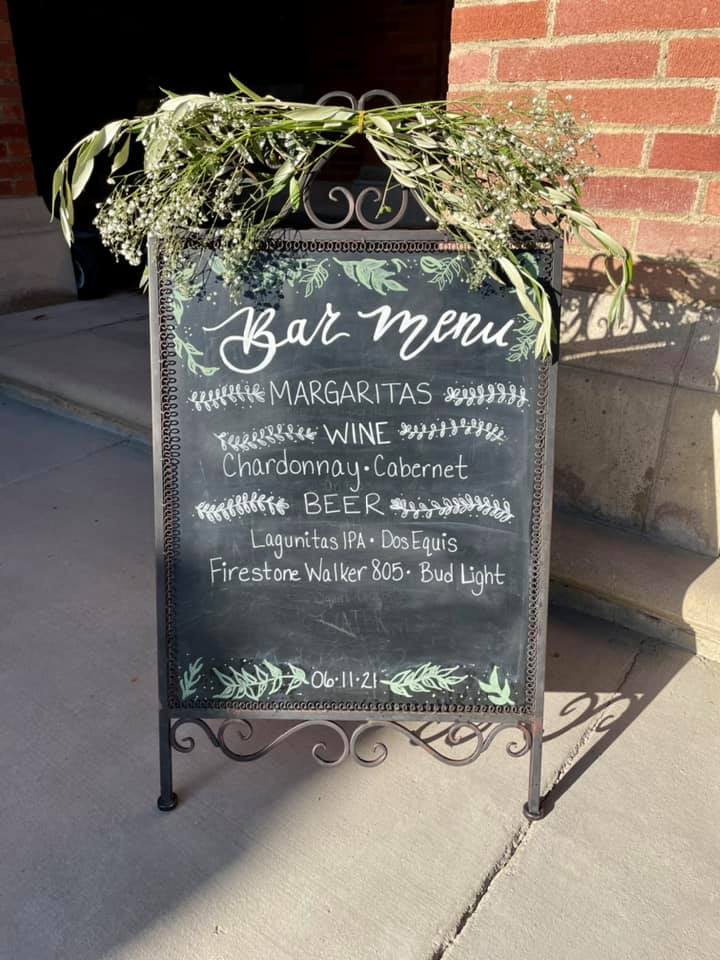 Bar Menu
MARGARITAS
WINE
Chardonnay • Cabernet
BEER
Lagunitas IPA • Dos Equis
Firestone Walker 805 • Bud Light
WATER
06•11•21